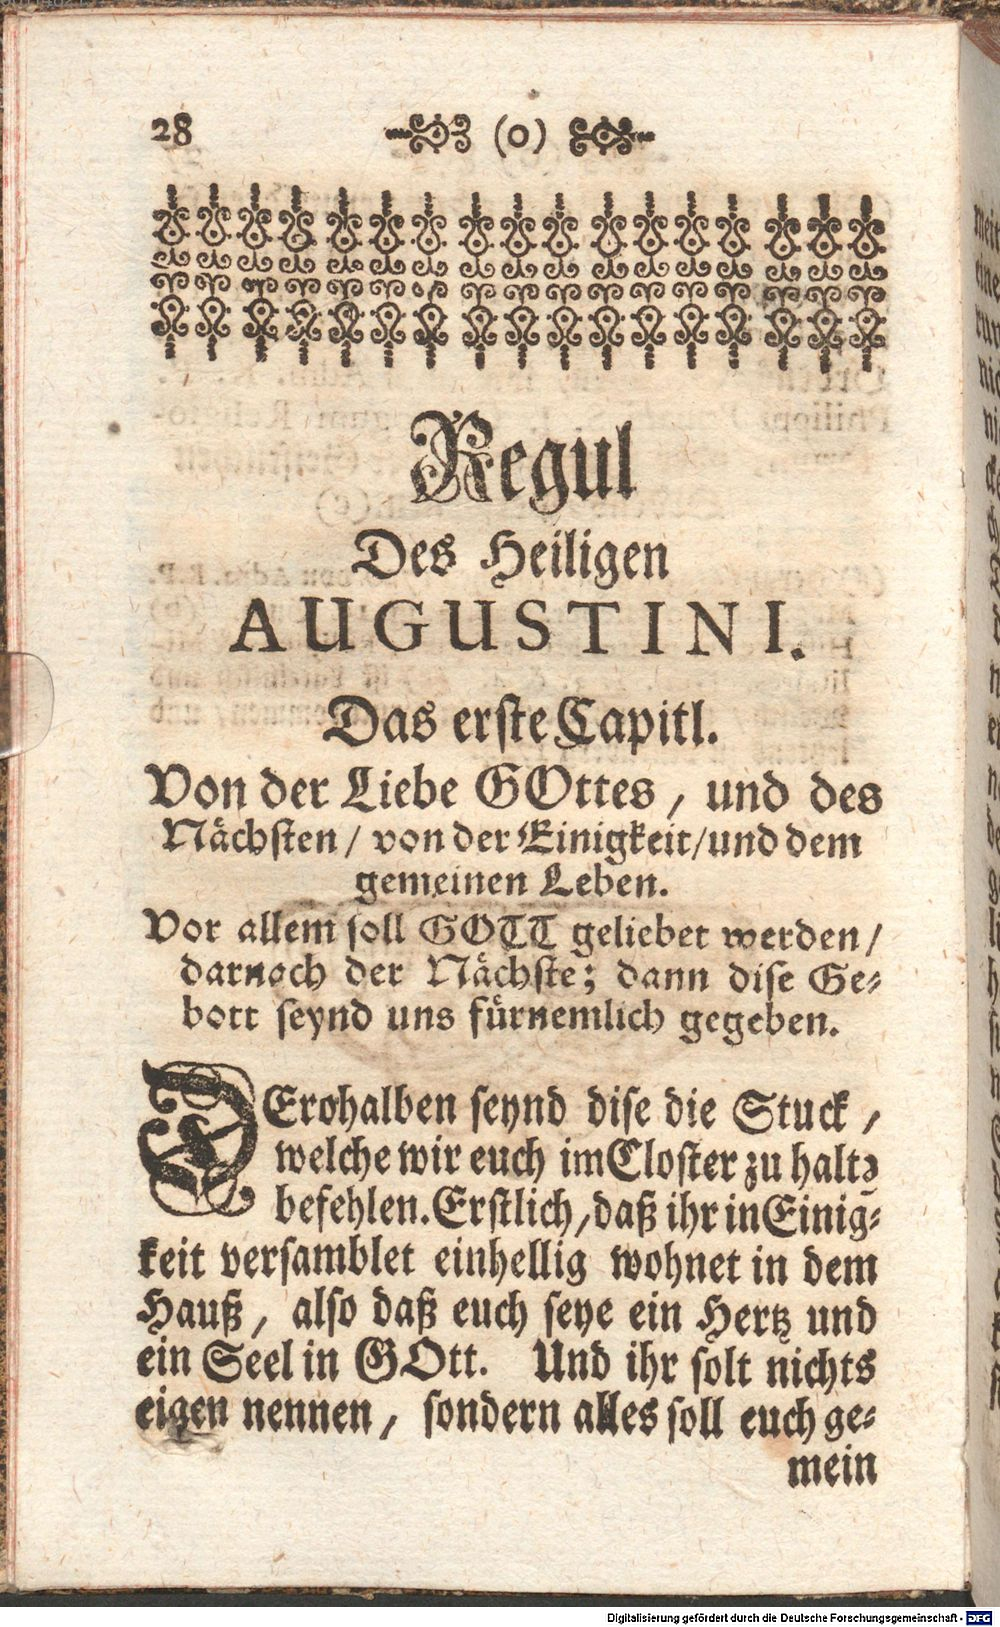 28 (0)
Regul
Des Heiligen
AUGUSTINI.
Das erste Capitl.
Von der Liebe GOttes, und des
Nächsten/ von der Einigkeit/ und dem
gemeinen Leben.
Vor allem soll GOTT geliebet werden/
darnach der Nächste; dann dise Ge-
bott seynd uns fürnemlich gegeben.
DErohalben seynd dise die Stuck,
welche wir euch im Closter zu haltē
befehlen. Erstlich, daß ihr in Einig-
keit versamblet einhellig wohnet in dem
Hauß, also daß euch seye ein Hertz und
ein Seel in GOtt. Und ihr solt nichts
eigen nennen, sondern alles soll euch ge-
mein
Digitalisierung gefördert durch die Deutsche Forschungsgemeinschaft - DFG